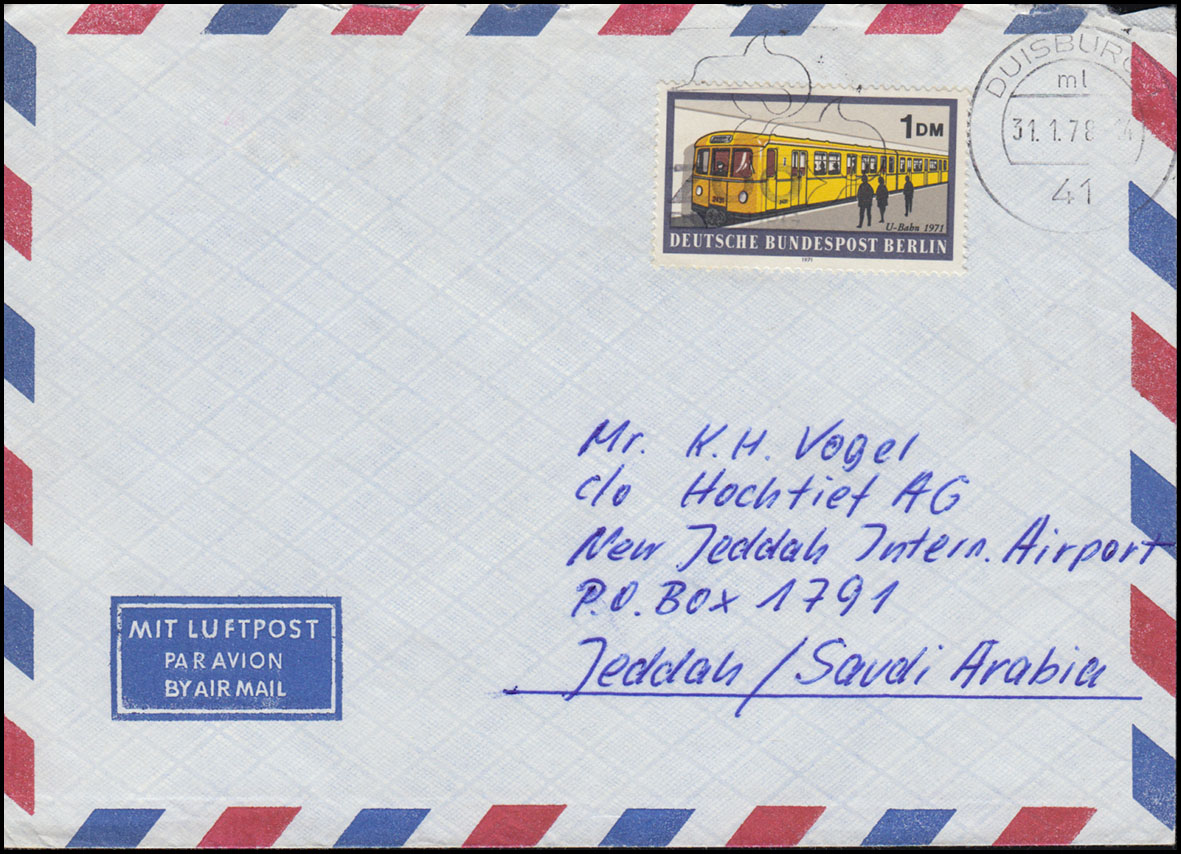 DUISBURG
ml
31. 1.78
41
1 DM
U-Bahn 1971
DEUTSCHE BUNDESPOST BERLIN
1971
Mr. K.H. Vogel
c/o Hochtief AG
New Jeddah Intern. Airport
P.O. Box 1791
Jeddah / Saudi Arabia
MIT LUFTPOST
PAR AVION
BY AIR MAIL